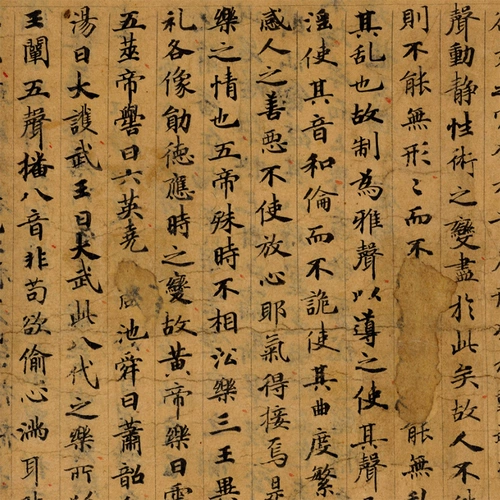 聲動静性術之變盡於此矣故人不
則不能無形〻而不能無
其乱也故制為雅聲以導之使其聲
淫使其音和倫而不詭使其曲度繁
感人之善悪不使放心耶氣得接焉是
樂之情也五帝殊時不相㳂樂三王異
礼各像勛徳應時之變故黄帝樂曰雲
五莖帝嚳曰六英堯咸池舜曰蕭韶
湯曰大護武王曰大武此八代之樂所
王闡五聲播八音非苟欲偷心満耳